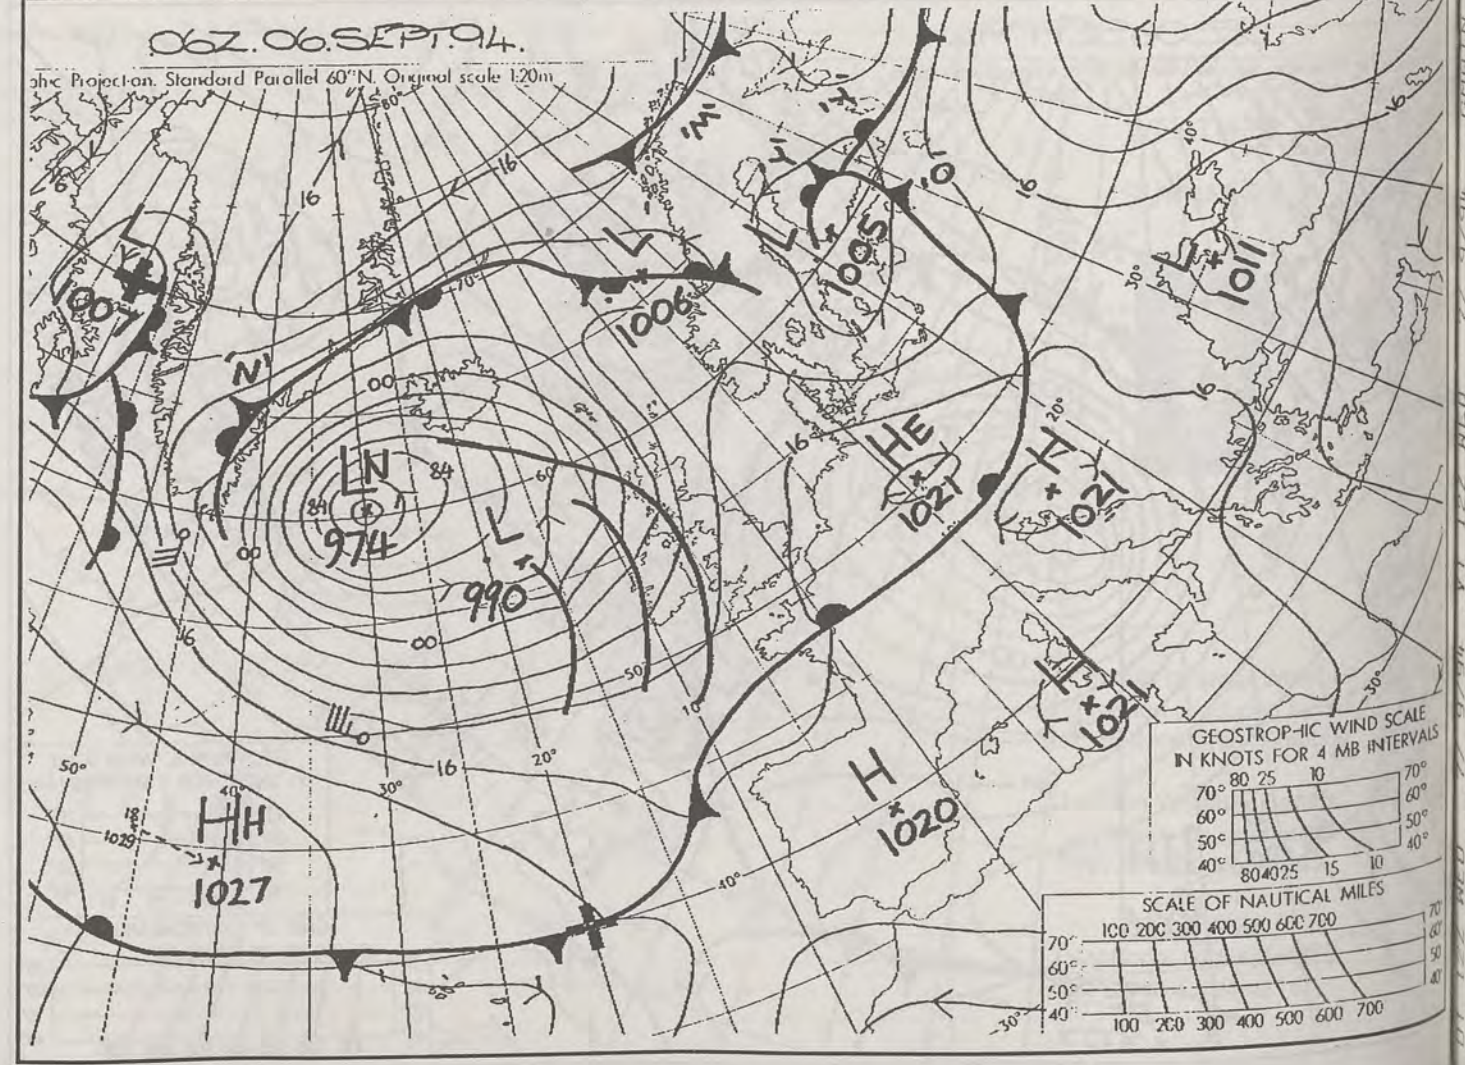 06Z.06.SEPT.94.
phic Projection. Standard Parallel 60°N. Original scale 1:20m
80°
16
16
16
'W'
'Y'
'Y'
'O'
40°
16
16
L
1007
L
1006
L
1005
L
1011
30°
70°
'N'
00
LN
84
84
974
60°
L
990
00
00
16
HE
1021
20°
H
1021
16
16
50°
10°
H
1021
30°
H
1020
50°
40°
30°
16
20°
HH
18
1029
1027
40°
30°
GEOSTROPHIC WIND SCALE
IN KNOTS FOR 4 MB INTERVALS
80 25 10
70° 70°
60° 60°
50° 50°
40° 40°
80 40 25 15 10
SCALE OF NAUTICAL MILES
100 200 300 400 500 600 700
70° 70°
60° 60°
50° 50
40° 40°
100 200 300 400 500 600 700